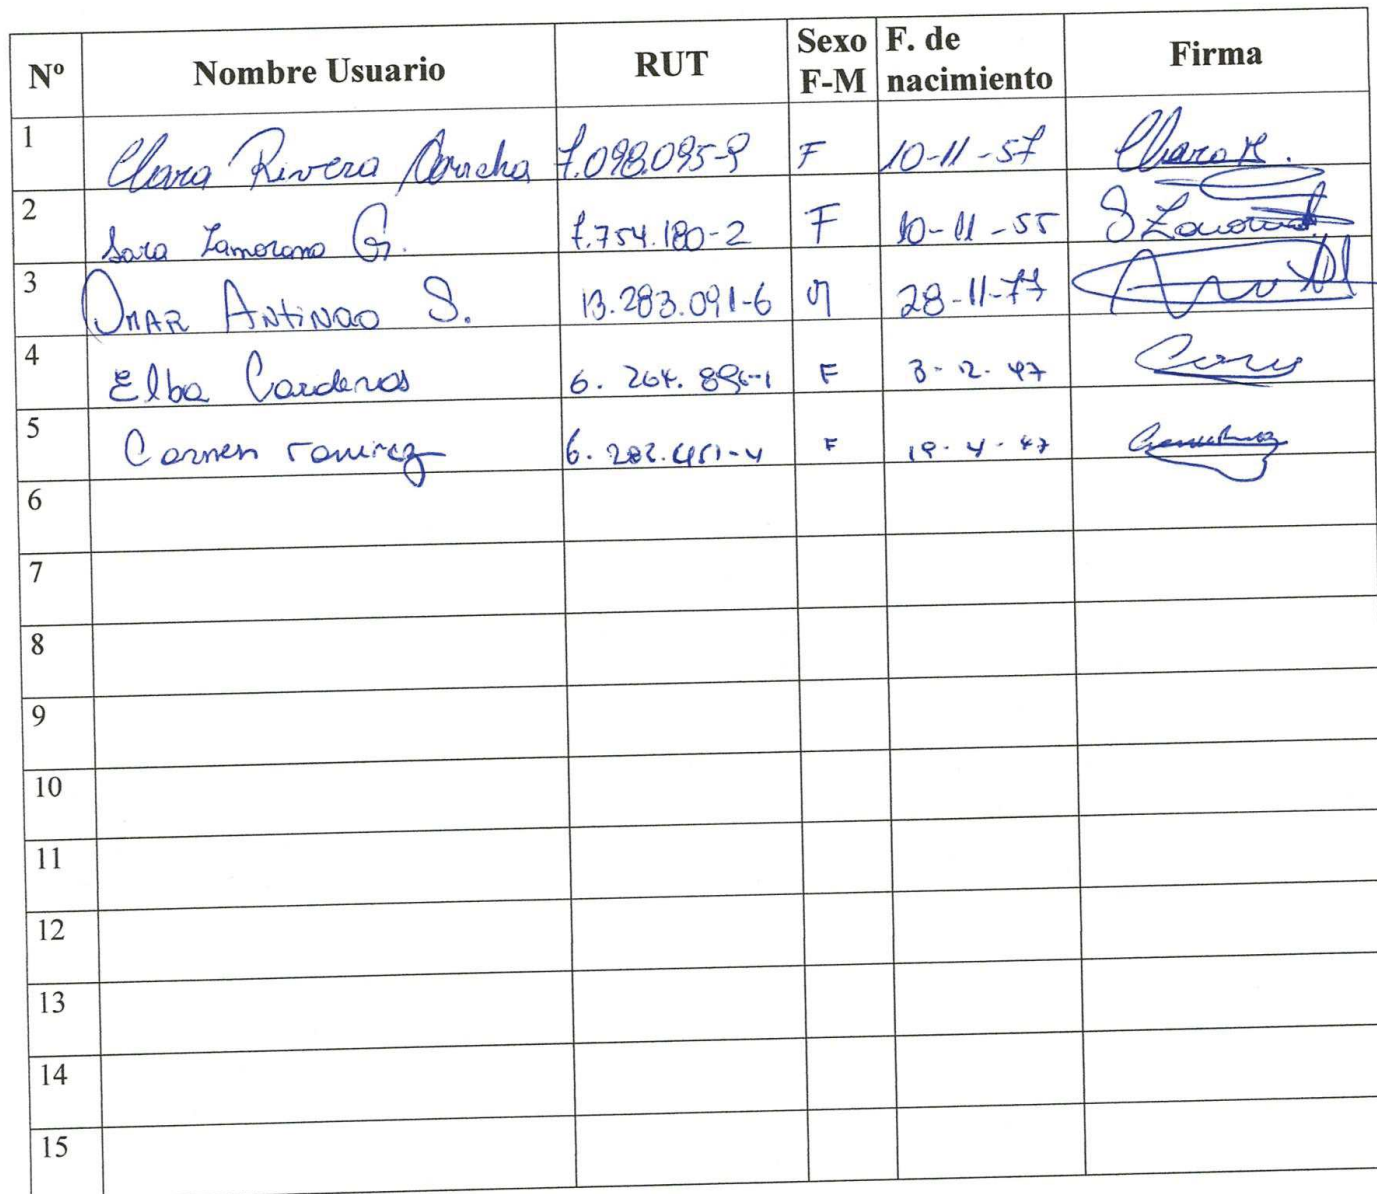 Nº Nombre Usuario RUT Sexo F-M F. de nacimiento Firma
1 Clara Rivera 7.098.095-9 F 10-11-57 Clara R.
2 Sara Zamorano G. 7.754.180-2 F 10-11-55 S Zamorano
3 OMAR ANtiNao S. 13.283.091-6 M 28-11-77
4 Elba Cardenas 6.264.896-1 F 3-12-47
5 Carmen ramirez 6.282.451-4 F 19-4-47
6
7
8
9
10
11
12
13
14
15